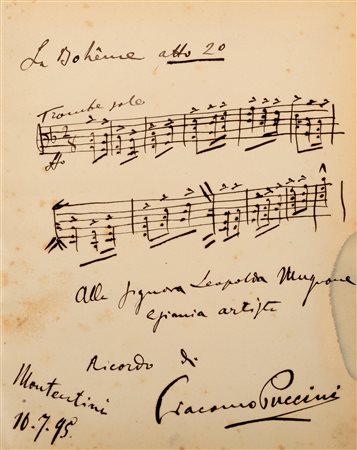 La Bohême atto 2o
Trombe sole
Alla Signora Leopolda Mugnone
egregia artista
Ricordo di
Giacomo Puccini
Montentini
10.7.95.